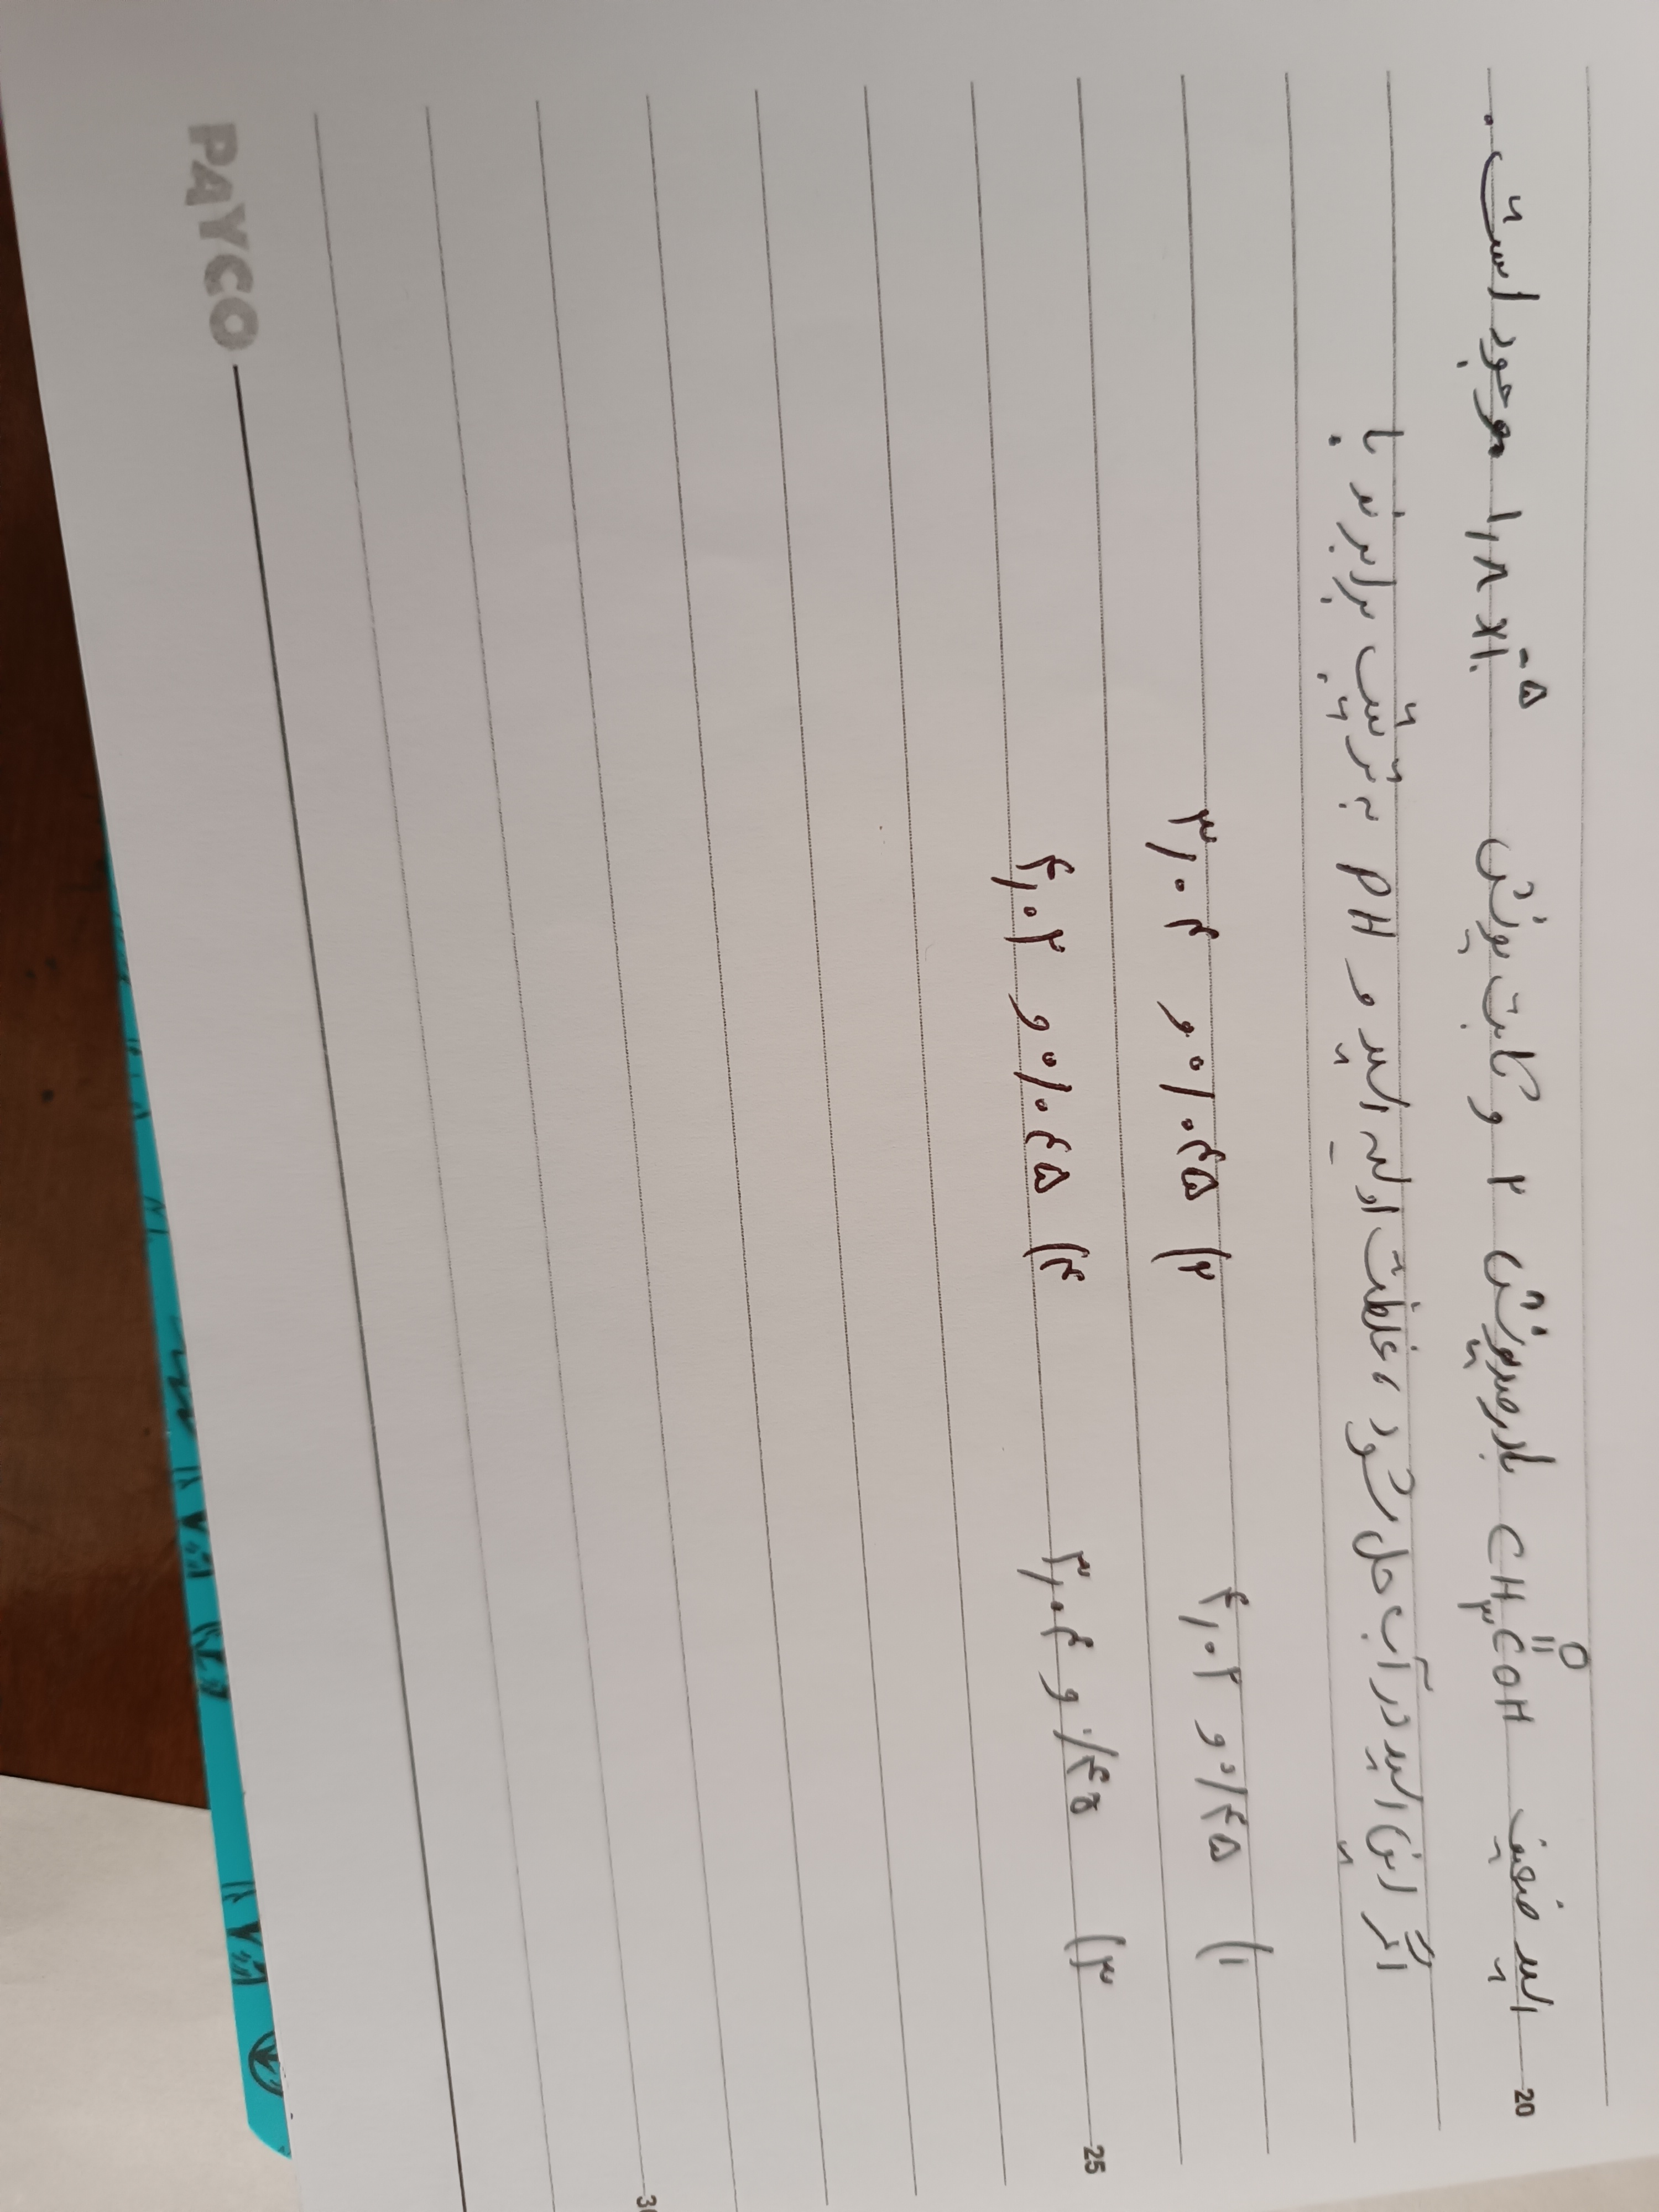 20 اسید ضعیف CH₃COH با درصد یونش ۲ و ثابت یونش ۱٫۸×۱۰⁻⁵ موجود است .
O
اگر این اسید در آب حل شود ، غلظت اولیه اسید و pH به ترتیب برابرند با
۱) ۰/۴۵ و ۴٫۰۲ ۲) ۰/۰۴۵ و ۳٫۰۴
25 ۳) ۰/۴۵ و ۳٫۰۴ ۴) ۰/۰۴۵ و ۴٫۰۲
PAYCO